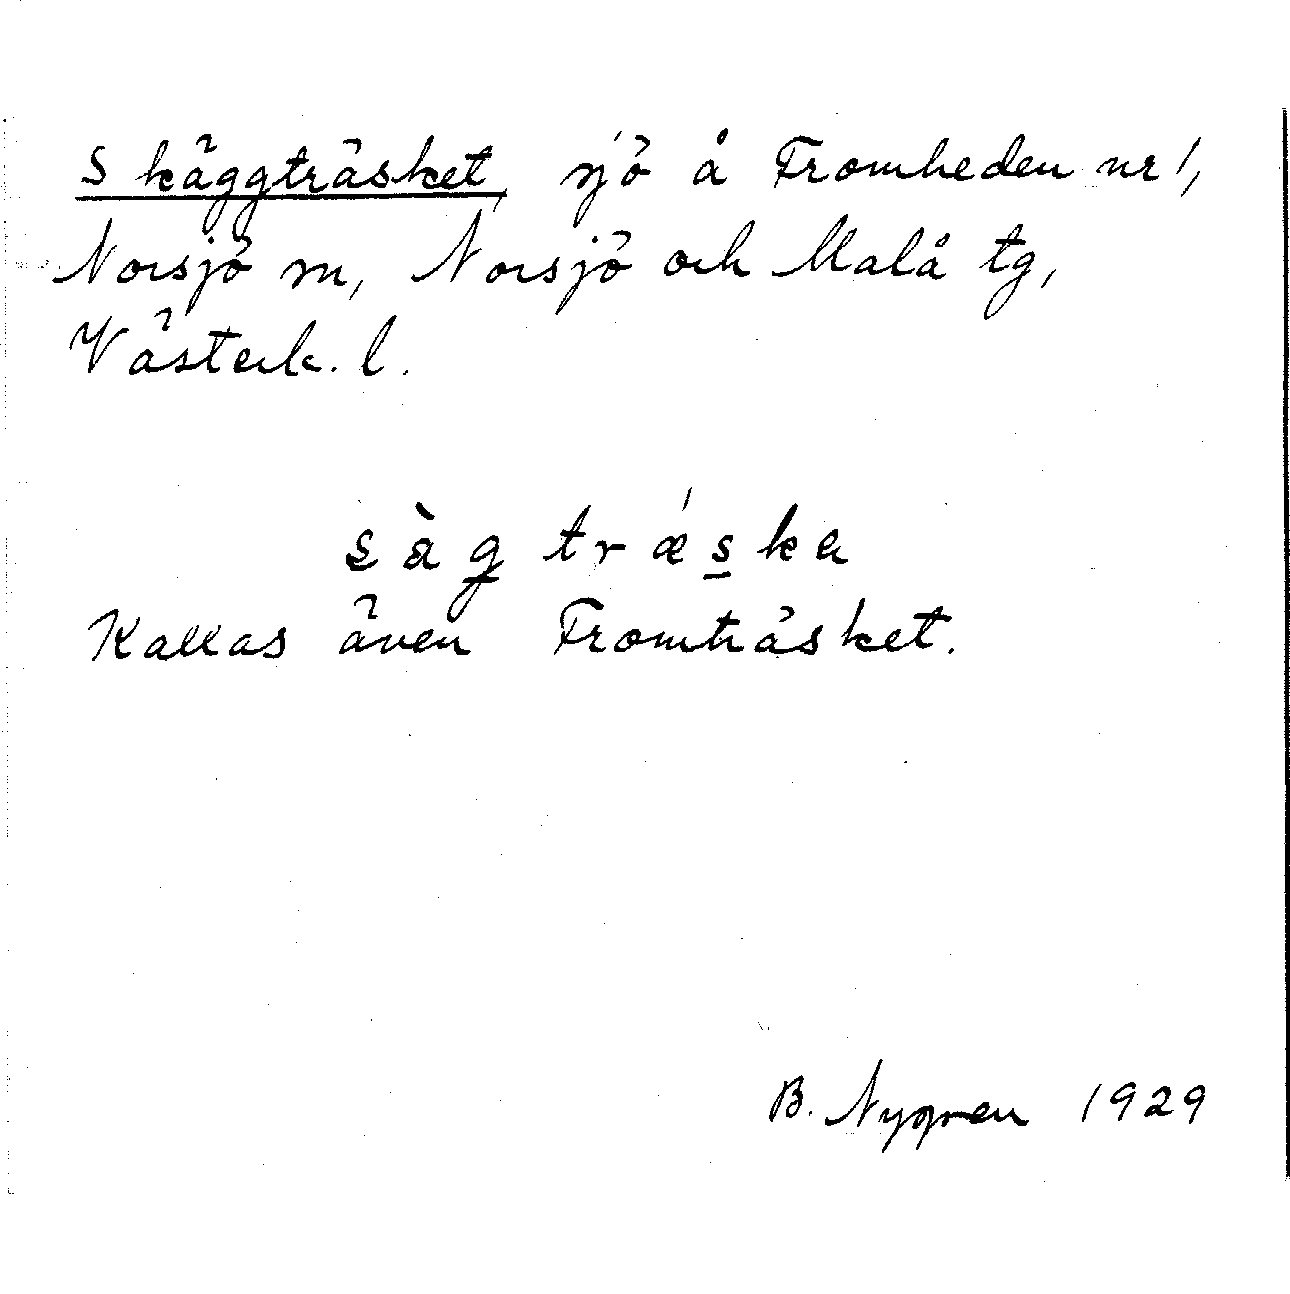 Skäggträsket, sjö å Fromheden nr 1,
Norsjö sn, Norsjö och Malå tg,
Västerb. l.
sàg trǽska
Kallas även Fromträsket.
B. Nygren 1929